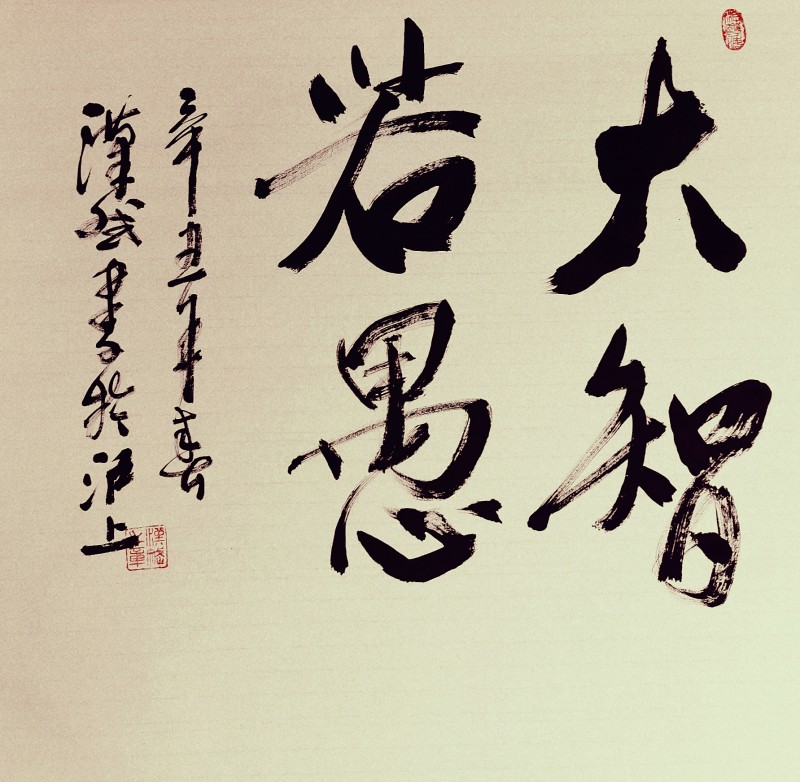 大智
若愚
辛丑年春
漢斌書於滬上